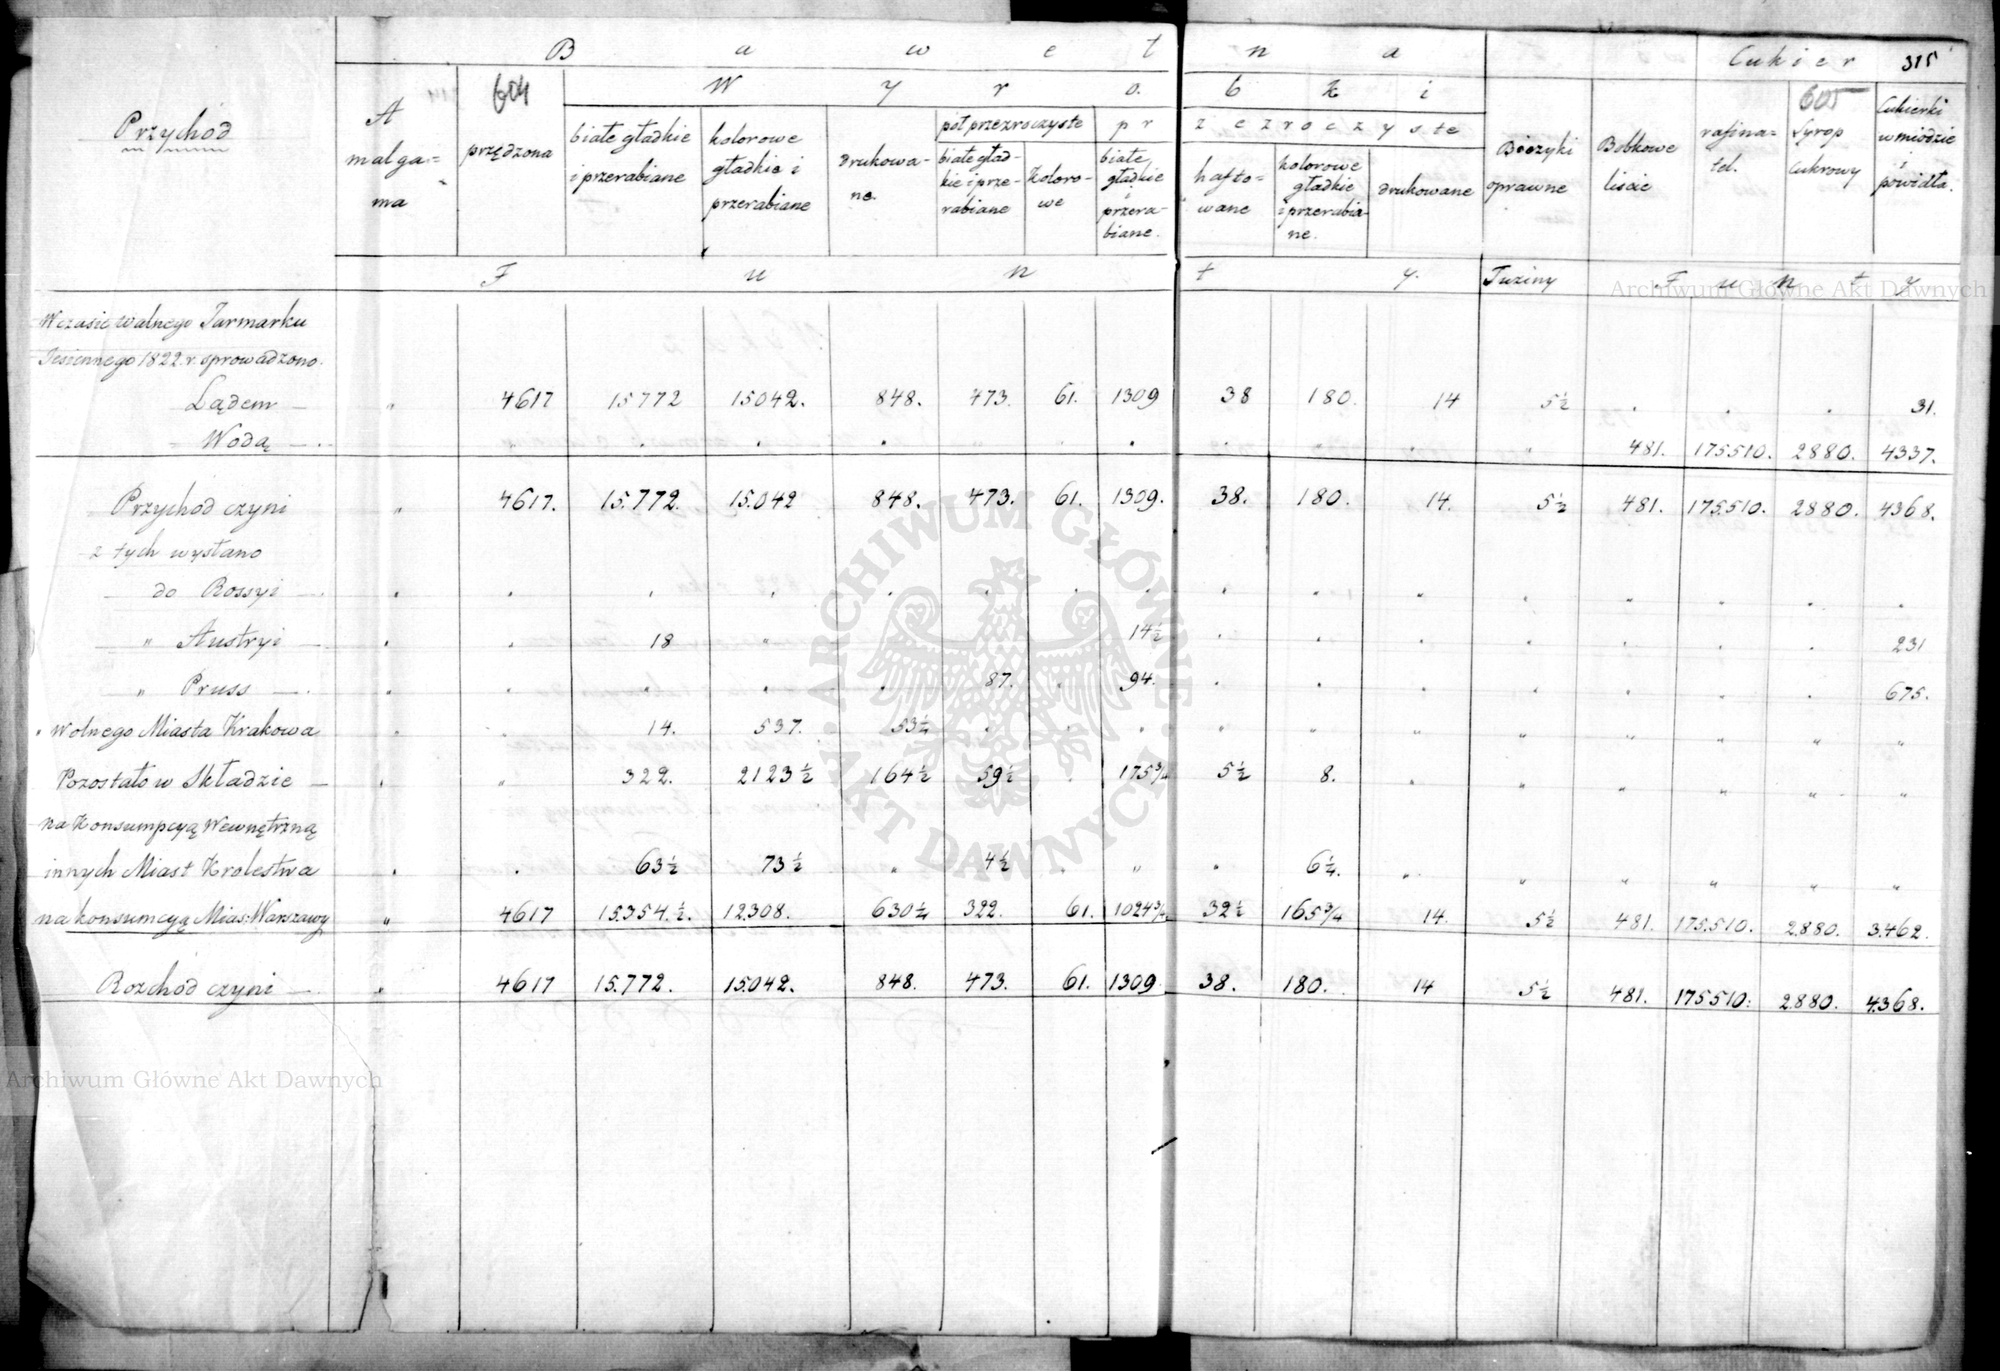 B a w e ł n a
Cukier
315
604
W y r o b k i
605
Przychód
A
malga=
ma
przędzona
białe gładkie
i przerabiane
kolorowe
gładkie i
przerabiane
drukowa-
ne.
pół przezroczyste
białe gład-
kie i prze-
rabiane
Koloro-
we
p r z e z r o c z y s t e
białe,
gładkie
i
przera-
biane.
hafto=
wane
kolorowe
gładkie
i przerabia-
ne.
drukowane
Biczyki
oprawne
Bobkowe
liście
rafina=
tel.
Syrop
cukrowy
Cukierki
w miodzie
i
powidła.
F u n t y.
Tuziny
F u n t y
W czasie walnego Jarmarku
Jesiennego 1822. r. sprowadzono.
Lądem — " 4617 15772 15042. 848. 473. 61. 1309 38 180. 14 5½ . . . 31.
Wodą — . " . . . " . . . . " 481. 175510. 2880. 4337.
Przychód czyni " 4617. 15.772. 15.042 848. 473. 61. 1309. 38. 180. 14. 5½ 481. 175.510. 2880. 4368.
z tych wysłano
do Rossyi — .
" Austryi — 18 " 14½ 231
" Pruss — . 87. 94. 675.
" Wolnego Miasta Krakowa 14. 537. 53¼
Pozostało w Składzie — 322. 2123½ 164½ 59½ 175¾ 5½ 8.
na Konsumpcyą Wewnętrzną
innych Miast Krolestwa 63½ 73½ " 4½ " 6¼.
na konsumcyą Mias: Warszawy " 4617 15.354.½. 12.308. 630¼ 322. 61. 1024¾ 32½ 165¾ 14. 5½ 481. 175.510. 2.880. 3.462.
Rozchód czyni — " 4617 15.772. 15.042. 848. 473. 61. 1309 38. 180. 14 5½ 481. 175510. 2.880. 4.368.
Archiwum Główne Akt Dawnych
ARCHIWUM GŁÓWNE AKT DAWNYCH
Archiwum Główne Akt Dawnych